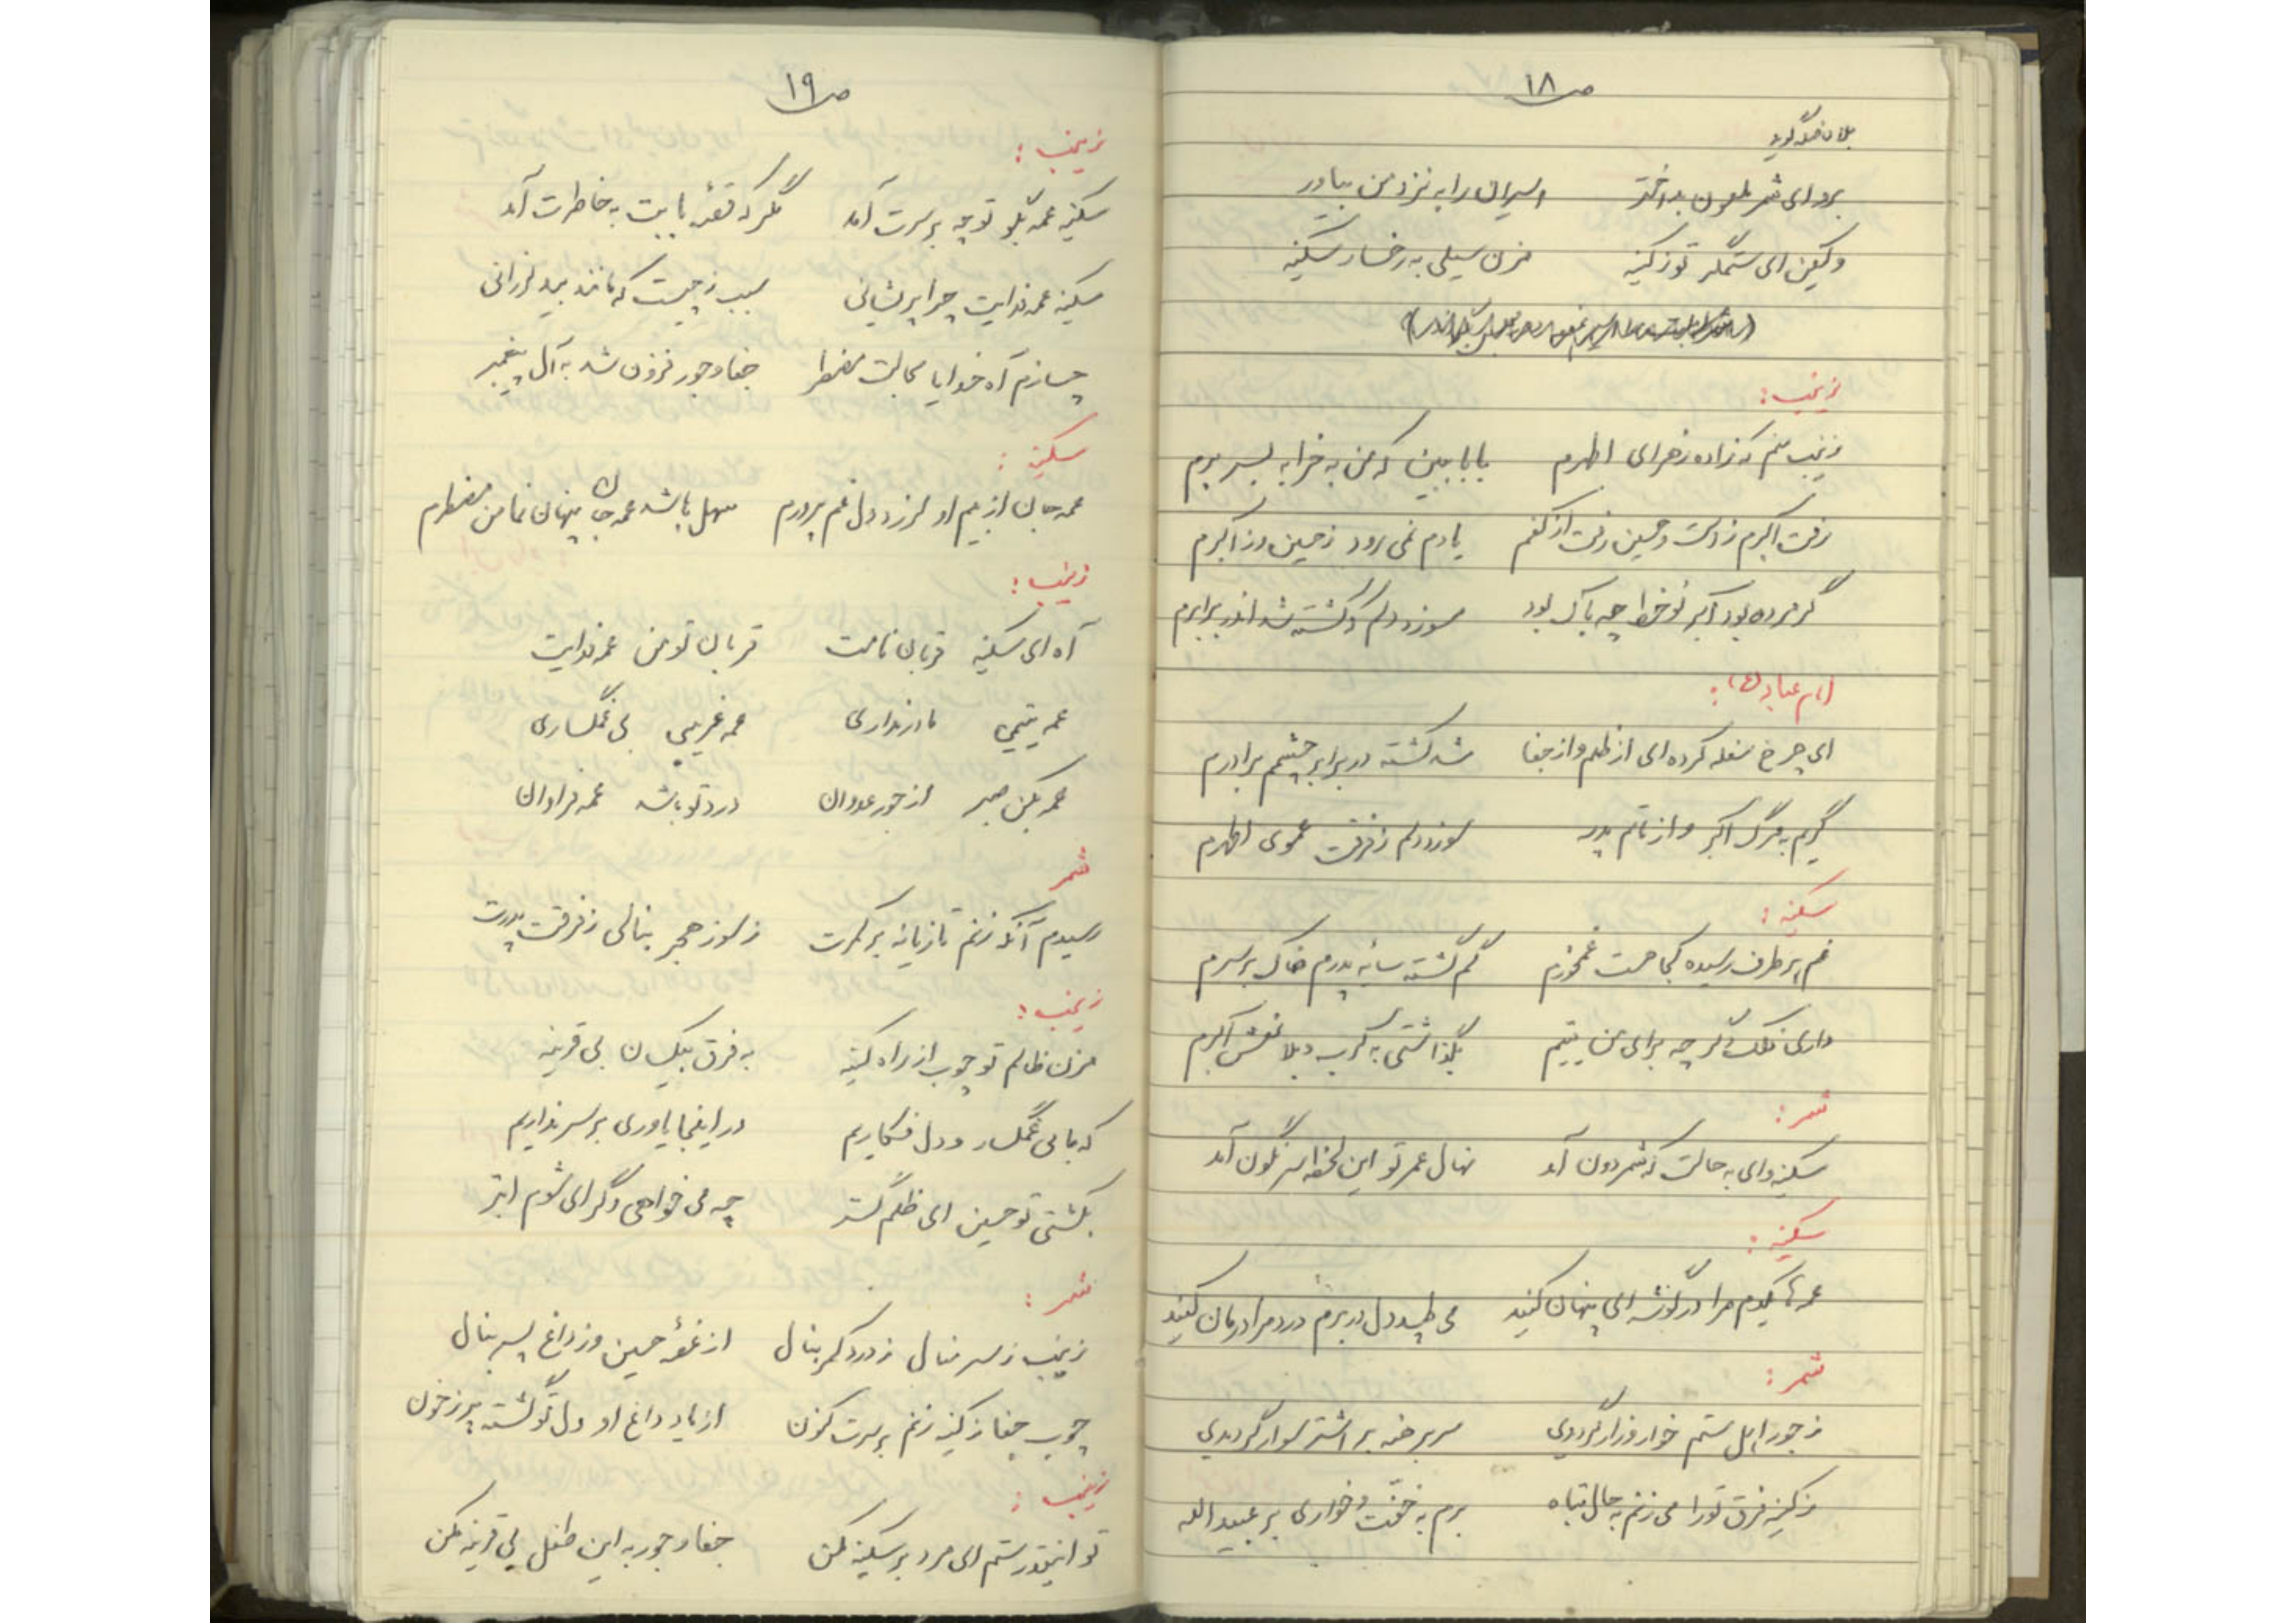 ص ۱۸
برو ای شمر ملعون بد اختر اسیران را به نزد من بیاور
ولیکن ای ستمگر تو ز کینه مزن سیلی به رخسار سکینه
زینب:
زینب منم که زاده زهرای اطهرم بابا ببین که من به خرابه بسر برم
رفت اکبرم ز دست و حسین رفت از کفم یادم نمی رود ز حسین و ز اکبرم
گر مرده بود اکبر نوخط چه باک بود سوزد دلم که کشته شد اندر برابرم
امام عباد (ع):
ای چرخ سفله کرده ای از ظلم و از جفا شد کشته در برابر چشمم برادرم
گریم به مرگ اکبر و از ماتم پدر سوزد دلم ز فرقت عموی اطهرم
سکینه:
غم بر طرف رسیده کجا هست غمخورم گم گشته سایه پدرم خاک بر سرم
داری فلک دگر چه برای من یتیم بگذاشتی به کرب و بلا نعش اکبرم
شمر:
سکینه وای به حالت که شمر دون آمد نهال عمر تو این لحظه سرنگون آمد
سکینه:
عمه ها گیدم مرا در گوشه ای پنهان کنید می طپد دل در برم درد مرا درمان کنید
شمر:
ز جور اهل ستم خوار و زار گردیدی سر برهنه بر اشتر سوار گردیدی
ز کینه فرق تو را می زنم به حال تباه برم به خفّت و خواری بر عبیدالله
ص ۱۹
زینب:
سکینه عمه بگو تو چه بر سرت آمد مگر که قصّهٔ بابت به خاطرت آمد
سکینه عمه فدایت چرا پریشانی سبب ز چیست که مانند بید لرزانی
چسازم آه خدایا بحالت مضطر جفا و جور فزون شد به آل پیغمبر
سکینه:
عمه جان از بیم او لرزد دل غم پرورم سهل باشد عمه جان پنهان نما من مضطرم
زینب:
آه ای سکینه قربان نامت قربان تو من عمه فدایت
عمه یتیمی مادر نداری عمه غریبی بی غمگساری
عمه بکن صبر از جور عدوان درد تو باشد عمه فراوان
شمر
رسیدم آنکه زنم تازیانه بر کمرت ز سوز هجر بنالی ز فرقت پدرت
زینب:
مزن ظالم تو چوب از راه کینه به فرق بیکسان بی قرینه
که ما بی غمگسار و دل فکاریم در اینجا یاوری بر سر نداریم
بکشتی تو حسین ای ظلم گستر چه می خواهی دگر ای شوم ابتر
شمر:
زینب ز سر منال ز درد کمر بنال از غصّهٔ حسین و ز داغ پسر بنال
چوب جفا ز کینه زنم بر سرت کنون از یاد داغ او دل تو گشته پر ز خون
زینب:
تو اینقدر ستم ای مرد بر سکینه مکن جفا و جور به این طفل بی قرینه مکن